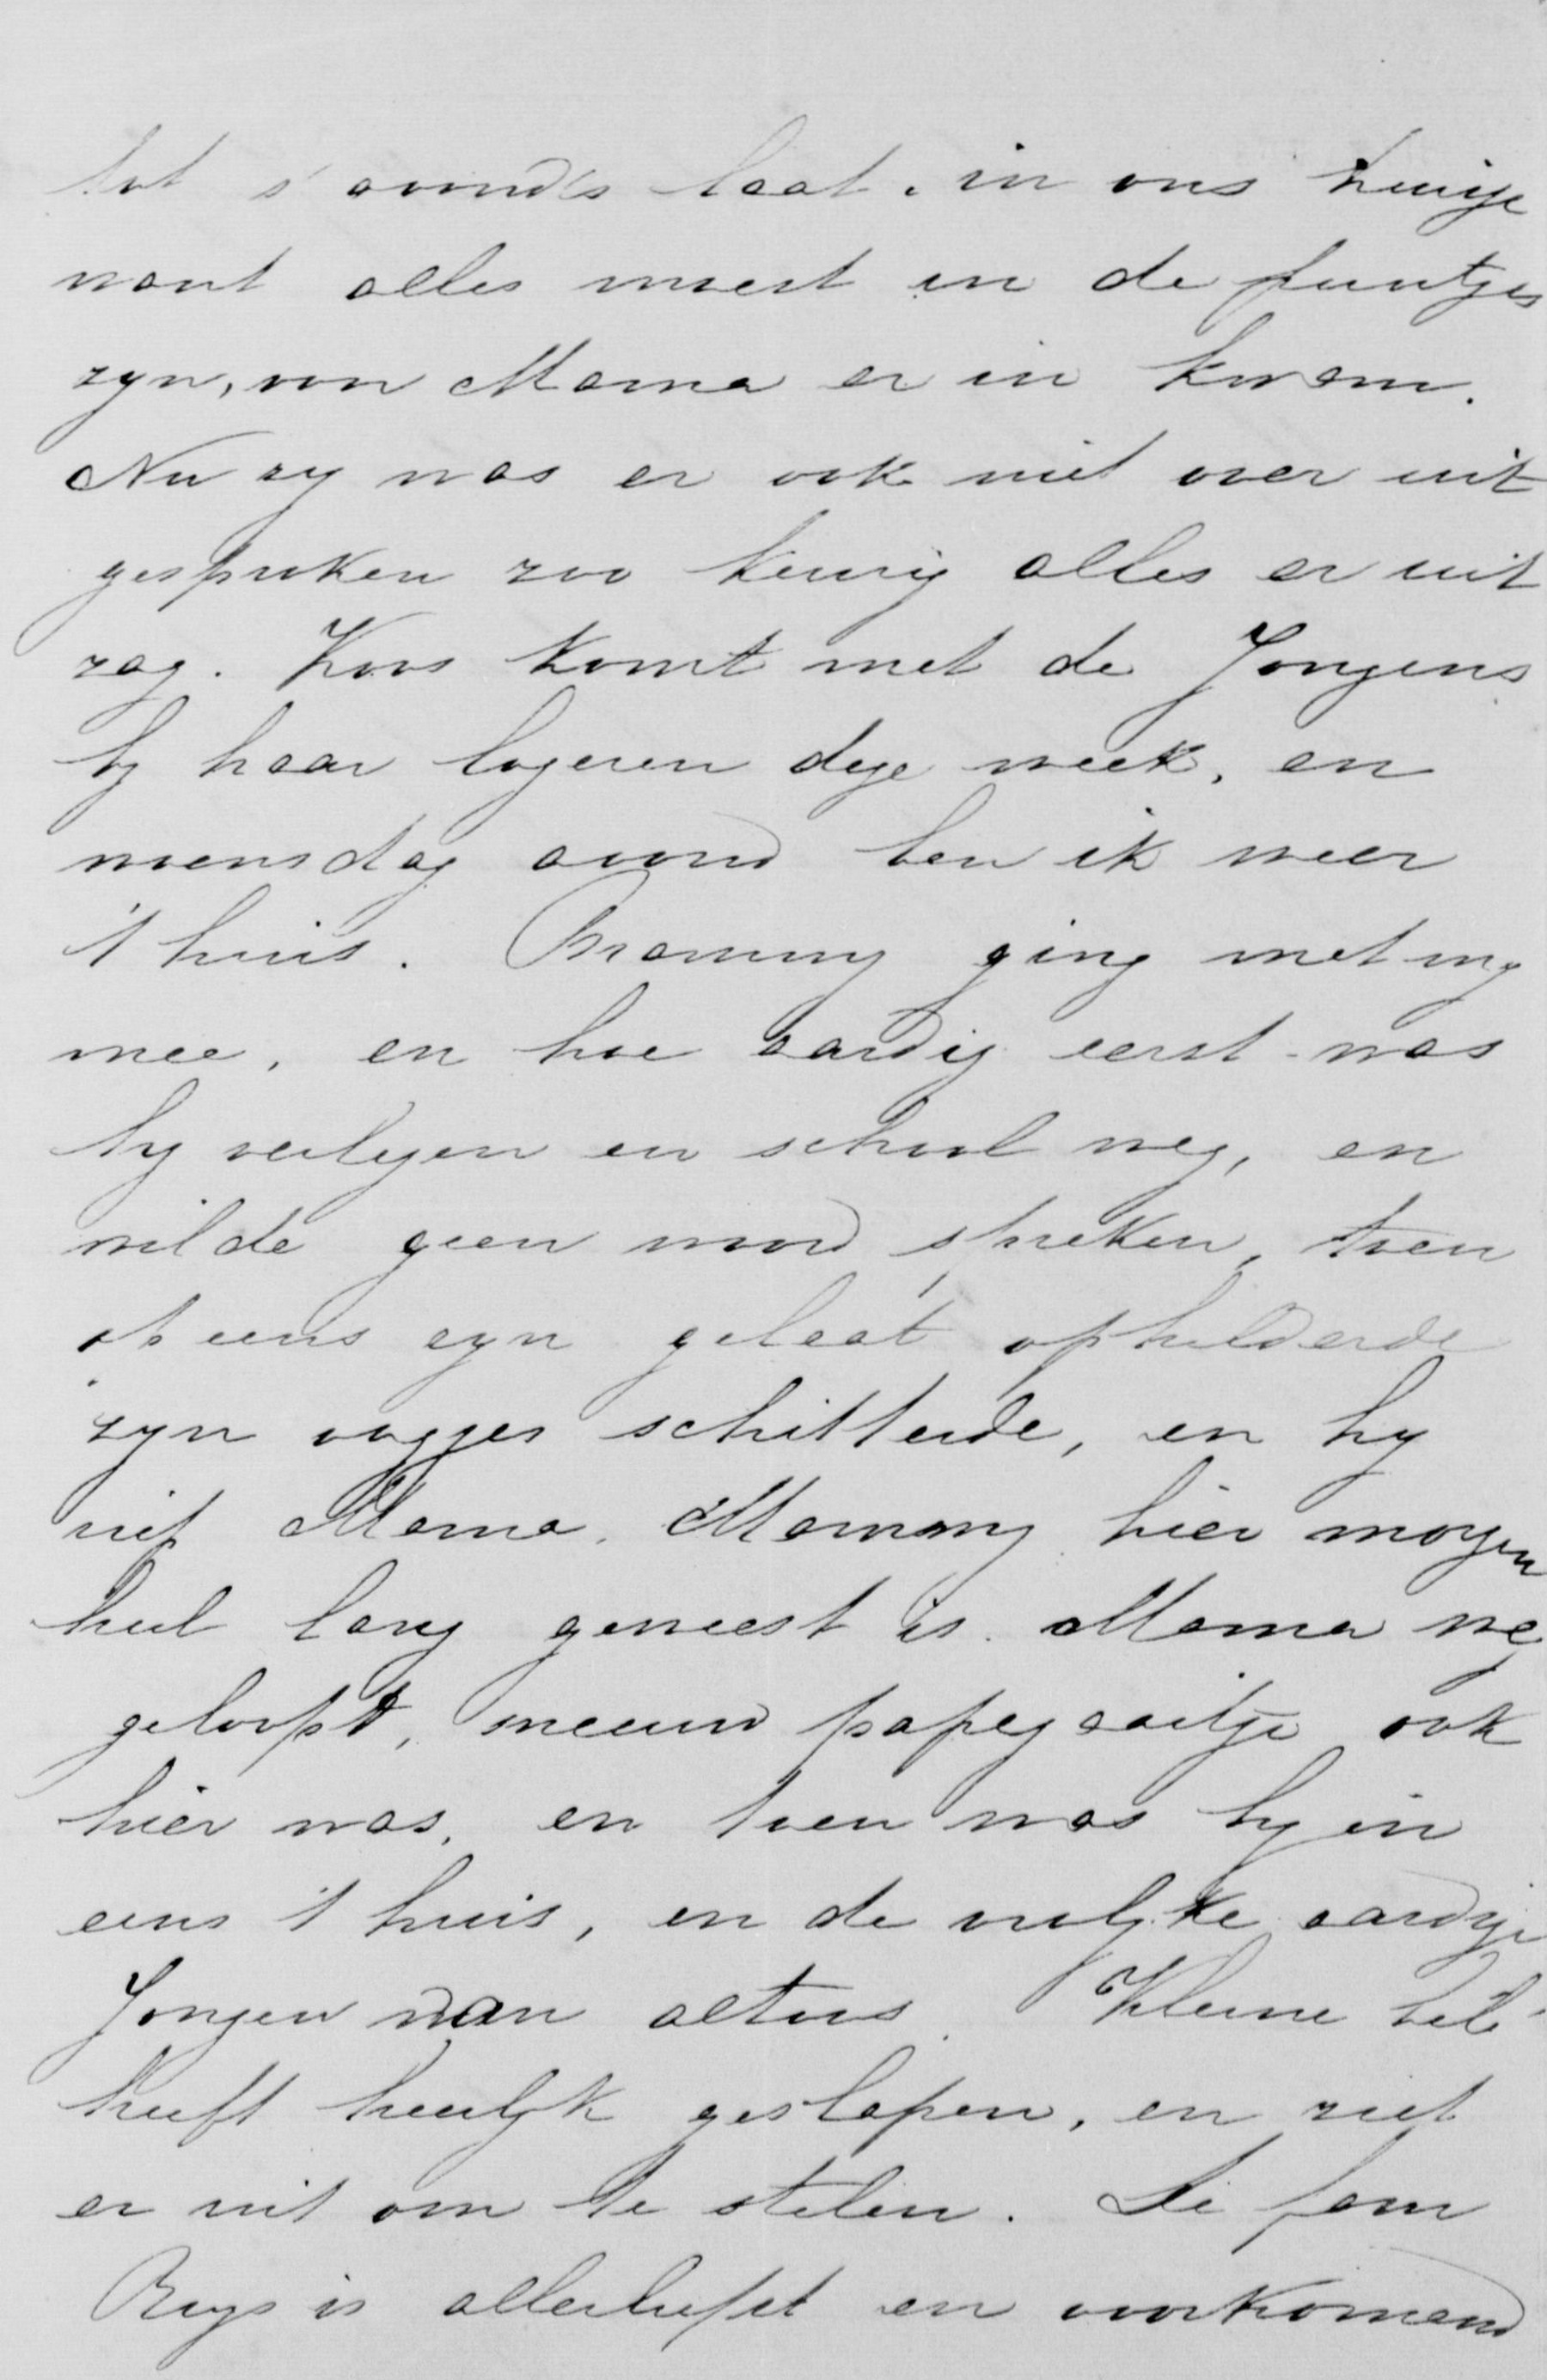 tot s'avonds laat in ons huisje
want alles moest in de puntjes
zyn, voor Mama er in kwam.
Nu zy was er ook niet over uit
gesproken zoo keurig alles er uit
zag. Koos komt met de Jongens
by haar logeren deze week, en
woensdag avond ben ik weer
t'huis. Mammy ging met my
mee, en hoe aardig eerst was
hy verlegen en school weg, en
wilde geen woord spreken, toen
op eens zyn gelaat ophelderde
zyn oogjes schitterde, en hy
riep Mama. Mammy hier morgen
heel lang geweest is. Mama weg
geloopt, meeuw papegaaitje ook
hier was, en toen was hy in
eens t'huis, en de vrolyke aardige
Jongen van altoos. Kleine
heeft heerlyk geslapen, en ziet
er uit om te stelen. De fam
Ruys is allerliefst en voorkomend